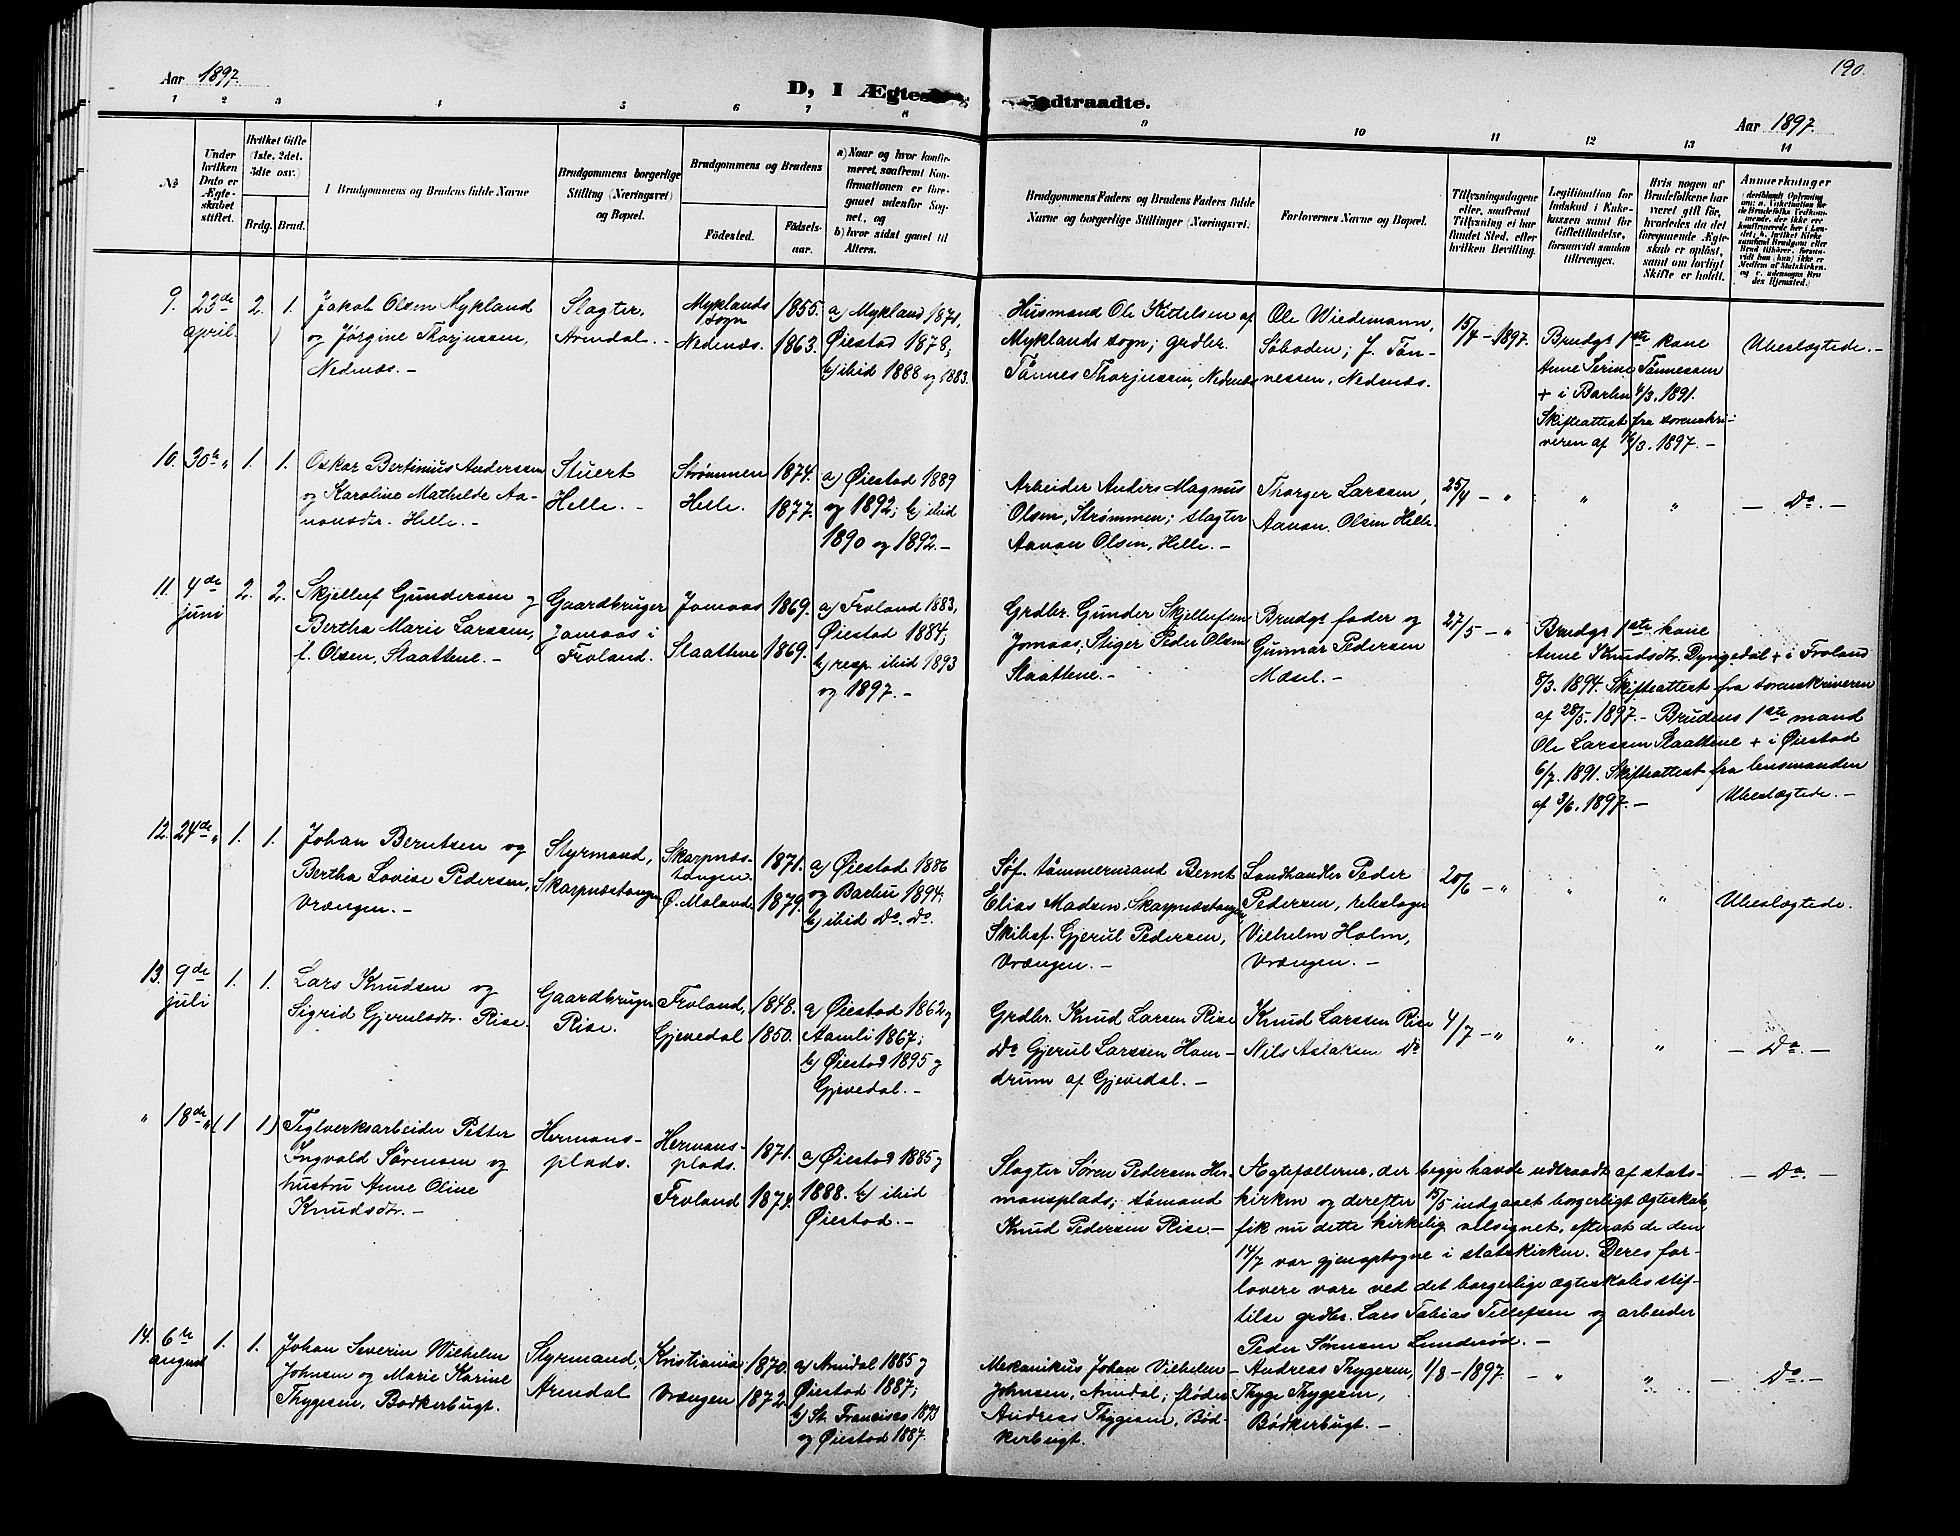 Aar 1897.
D, I Ægtes
Indtraadte.
190.
Aar 1897.
1 2 3 4 5 6 7 8 9 10 11 12 13 14
№
Under hvilken Dato er Ægteskabet stiftet.
Hvilket Gifte (1ste, 2det, 3die osv.)
Brdg. Brud.
Brudgommens og Brudens fulde Navne
Brudgommens borgerlige Stilling (Næringsvei) og Bopæl.
Brudgommens og Brudens
Fødested.
Fødsels-aar.
a) Naar og hvor konfirmeret, saafremt Konfirmationen er foregaaet udenfor Sognet, og
b) hvor sidst gaaet til Alters.
Brudgommens Faders og Brudens Faders fulde Navne og borgerlige Stillinger (Næringsvei.
Forlovernes Navne og Bopæl.
Tillysningsdagene eller, saafremt Tillysning ei har fundet Sted, efter hvilken Bevilling.
Legitimation for Indskud i Enkekassen samt for Giftetilladelse, forsaavidt saadan tiltrænges.
Hvis nogen af Brudefolkene har været gift før, hvorledes da det foregaaende Ægteskab er opløst, samt om lovligt Skifte er holdt.
Anmerkninger
9. 23de april 2. 1.
Jakob Olsen Mykland
og Jørgine Thorjussen,
Nedenæs. –
Slagter,
Arendal. –
Myklands sogn
Nedenæs.
1855.
1863.
a) Mykland 1871,
Øiestad 1878;
b) ibid 1888 og 1883.
Husmand Ole Kittelsen af
Myklands sogn; grdbr.
Tønnes Thorjussen, Nedenæs
Ole Wiedemann,
Søboden; J. Tøn-
nessen, Nedenæs.
15/4 – 1897.
Brudgs 1ste kone
Anne Serine Tønnessen
+ i Barbu 4/3. 1891.
Skifteattest fra sorenskri-
veren af 16/3. 1897. –
Ubeslægtede. –
10. 30te " 1. 1.
Oskar Bertinius Andersen
og Karoline Mathilde Aa-
nonsdr. Helle. –
Stuert
Helle. –
Strømmen
Helle.
1874.
1877.
a) Øiestad 1889
og 1892; b) ibid
1890 og 1892. –
Arbeider Anders Magnus
Olsen, Strømmen; slagter
Aanon Olsen, Helle. –
Thorger Larssen,
Aanon Olsen Helle.
25/4 – " " "
– Do. –
11. 4de juni 2. 2.
Skjellef Gundersen og
Bertha Marie Larssen,
f. Olsen, Slaattene. –
Gaardbruger
Jomaas i
Froland.
Jomaas
Slaattene
1869.
1869.
a) Froland 1883,
Øiestad 1884;
b) resp. ibid 1893
og 1897. –
Grdbr. Gunder Skjellefsen
Jomaas, Stiger Peder Olsen
Slaattene. –
Brudgs fader og
Gunnar Pedersen
Mæsel. –
27/5 – "
Brudgs 1ste kone
Anne Knudsdr. Dyngedal + i Froland
8/3. 1894. Skifteattest fra sorenskriveren
af 28/5. 1897. – Brudens 1ste mand
Ole Larssen Slaattene + i Øiestad
6/7. 1891. Skifteattest fra lensmanden
af 3/6. 1897. –
Ubeslægtede. –
12. 24de " 1. 1.
Johan Berntsen og
Bertha Lovise Pedersen,
Vrængen. –
Styrmand,
Skarpnæstangen
Skarpnæs-
tangen.
Ø. Molands
1871.
1879.
a) Øiestad 1886
og Barbu 1894;
b) ibid Do. Do.
Søf. tømmermand Bernt
Elias Madsen, Skarpnæstangen,
Skibsf. Gjerul Pedersen,
Vrængen. –
Landhandler Peder
Pedersen, rebslager
Vilhelm Holm,
Vrængen. –
20/6 – " " "
Ubeslægtede.
13. 9de juli 1. 1.
Lars Knudsen og
Sigrid Gjerulsdtr. Rise.
Gaardbruger
Rise.
Froland,
Gjevedal
1848.
1850.
a) Øiestad 1862 og
Aamli 1867;
b) Øiestad 1895 og
Gjevedal. –
Grdbr. Knud Larsen Rise
Do Gjerul Larssen Ham-
drum af Gjevedal. –
Knud Larssen Rise
Nils Aslaksen Do
4/7 – " " "
– Do. –
" 18de " (1 1)
Teglverksarbeider Petter
Ingvald Sørensen og
hustru Anne Oline
Knudsdtr. –
Hermans-
plads.
Hermans-
plads.
Froland
1871.
1874.
a) Øiestad 1885 og
1888. b) ibid
Øiestad. –
Slagter Søren Pedersen Her-
mansplads; tømand
Knud Pedersen Rise. –
Ægtefællerne, der begge havde udtraadt af stats-
kirken og derefter 15/5 indgaaet borgerligt ægteskab,
fik nu dette kirkelig velsignet, efterat de den
14/7 var gjenoptagne i statskirken. Deres for-
lovere vare ved det borgerlige ægteskabs stif-
telse grdbr. Lars Tobias Tellefsen og arbeider
Peder Sørensen Lunderød. –
– Do. –
14. 6te august 1. 1.
Johan Severin Wilhelm
Johnsen og Marie Karine
Thygesen, Bødkerbugt.
Styrmand,
Arendal
Kristiania
Vrængen
1870.
1872.
a) Arendal 1885 og
Øiestad 1887;
b) St. Francisco 1893
og Øiestad 1887.
Mekanikus Johan Vilhelm
Johnsen, Arendal; fløder
Andreas Thygesen, Bød-
kerbugt.
Andreas Thygesen,
Thyge Thygesen,
Bødkerbugt. –
1/8 – 1897. – " "
– Do. –